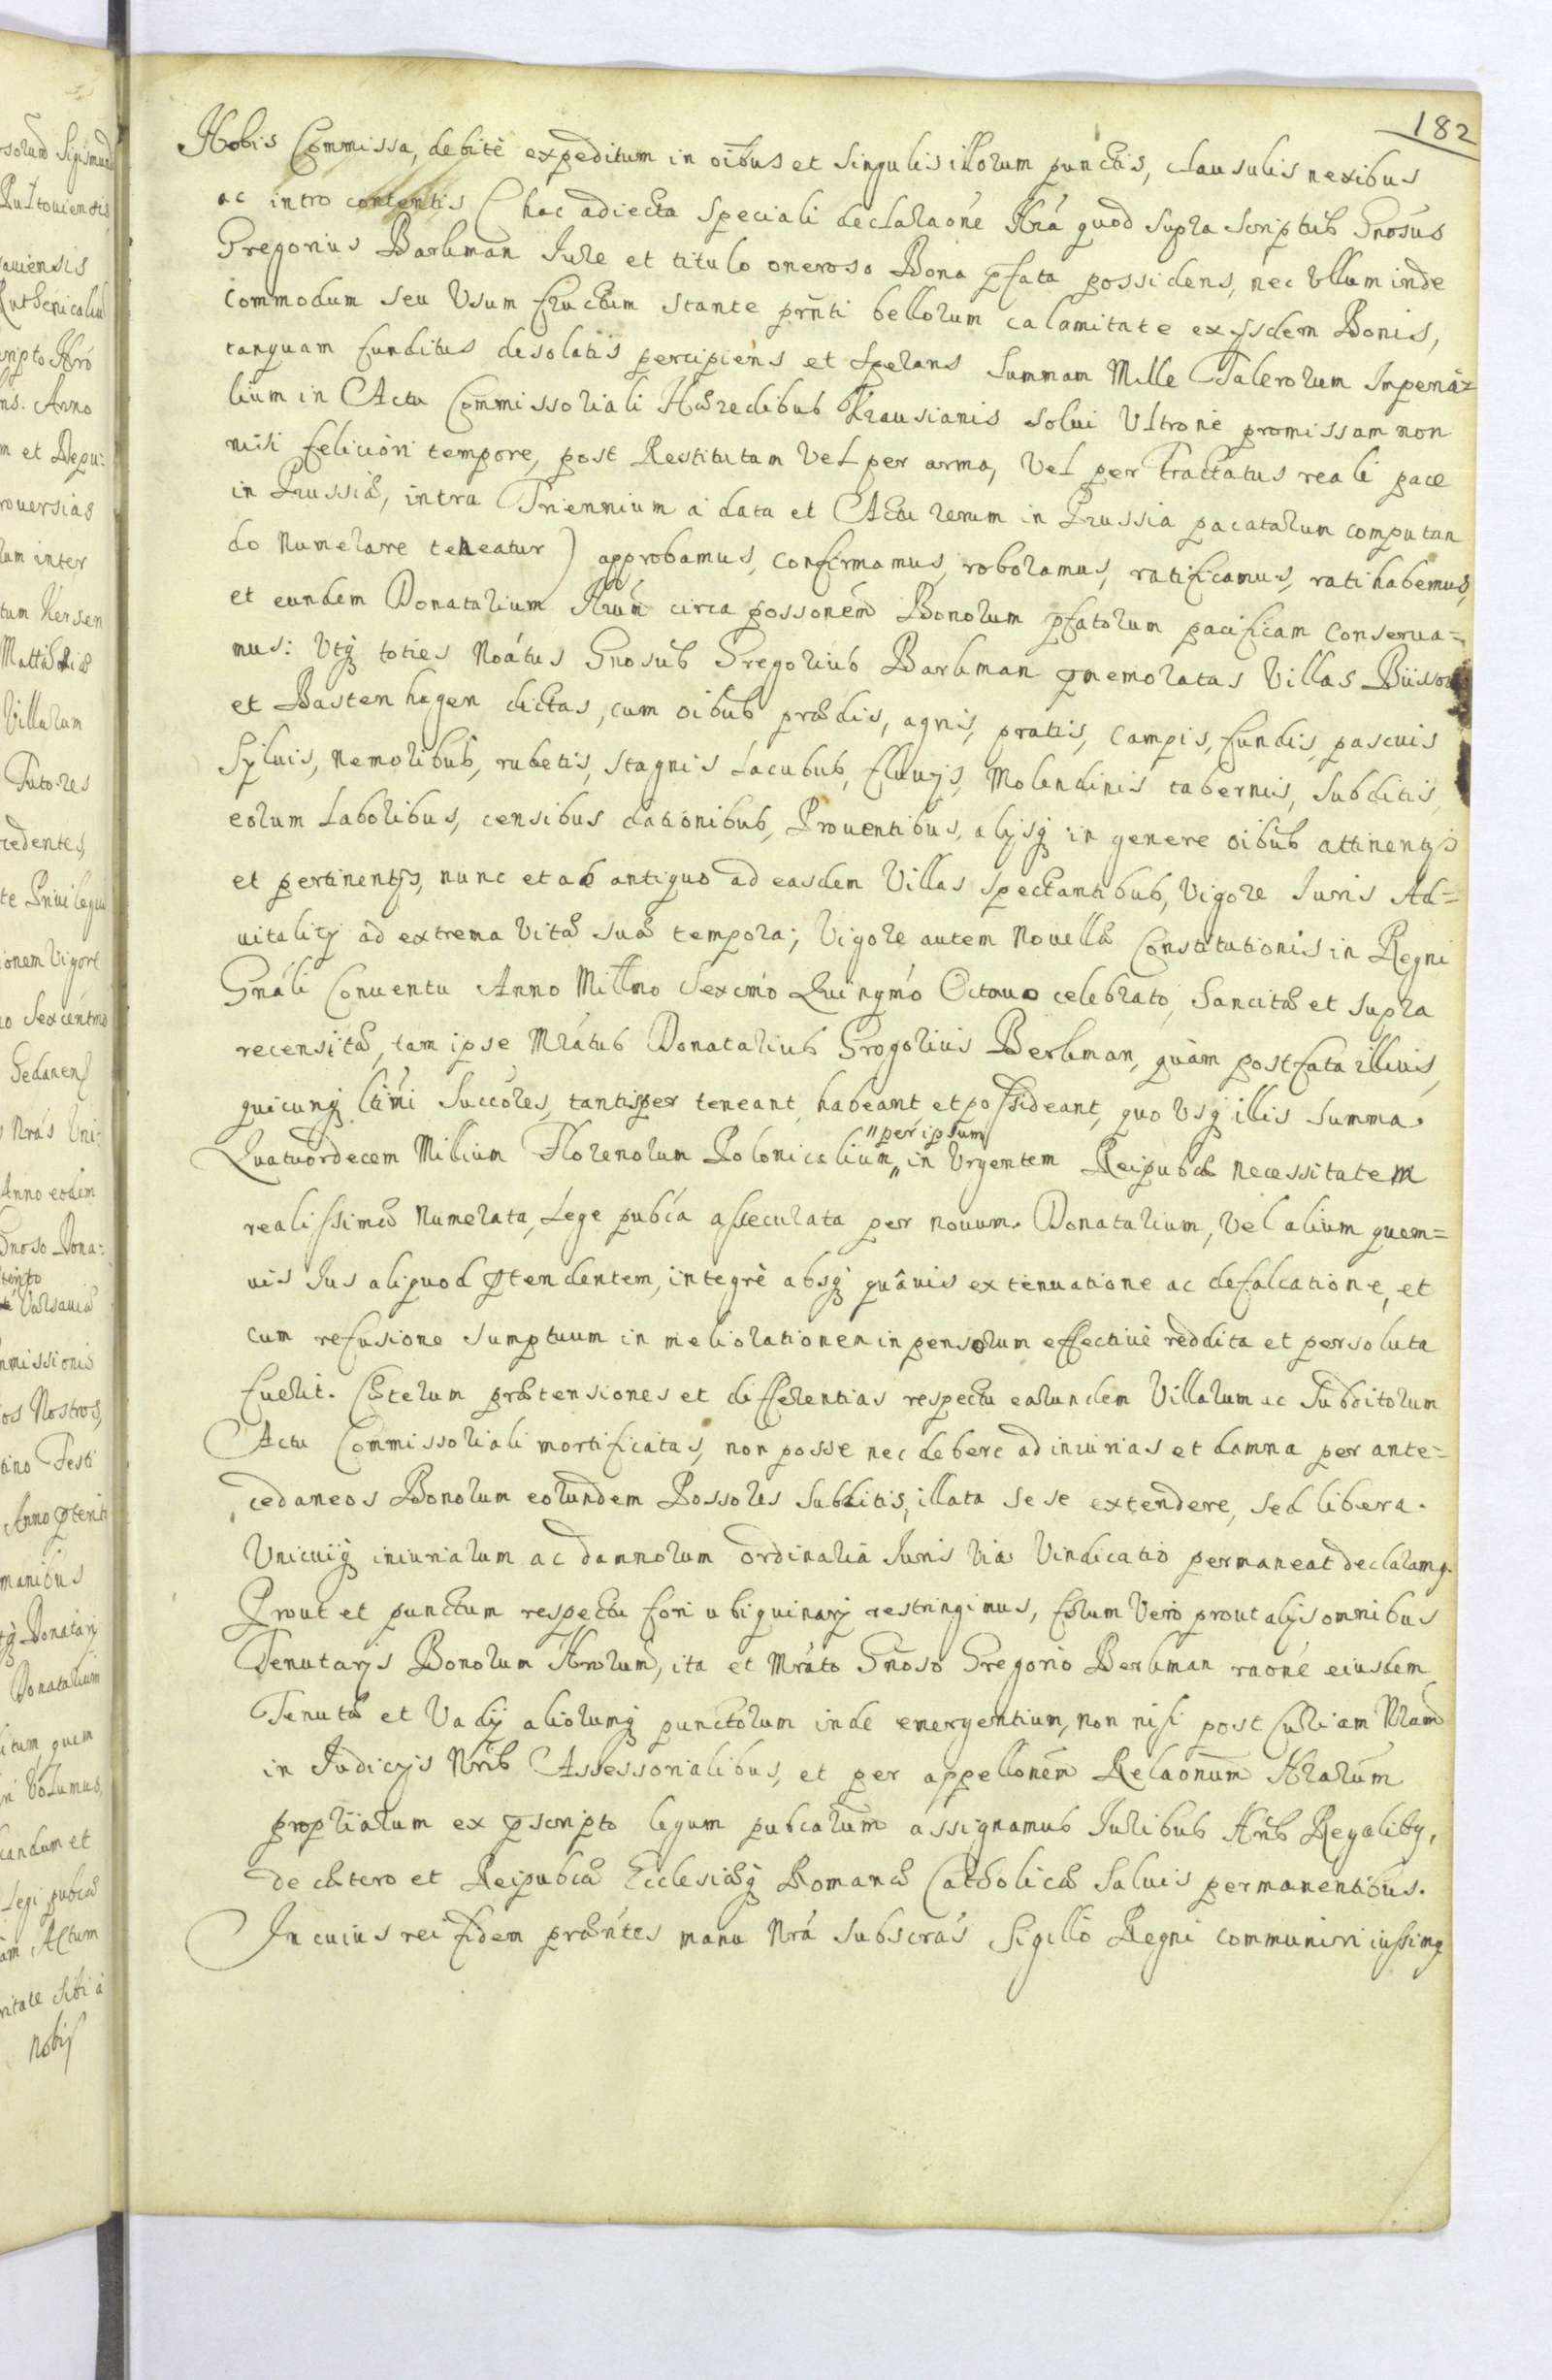 182
Nobis Commissa, debitè expeditum in oibus et Singulis illorum punctis, clausulis nexibus
ac intro contentis (hac adiecta Speciali declaraone Nra quod supra scriptus Gnosus
Gregorius Barkman Iure et titulo oneroso Bona pfata possidens, nec Ullum inde
commodum seu Usum fructum stante pnti bellorum calamitate ex ysdem Bonis,
tanquam funditus desolatis percipiens et sperans Summam Mille Talerorum Imperia=
lium in Actu Commissoriali Hæredibus Krausianis solui Ultrone promissam non
nisi feliciori tempore, post Restitutam Vel per arma, Vel per Tractatus reali pace
in Prussiâ, intra Triennium a data et Actu rerum in Prussia pacatarum computan
do numerare teneatur) approbamus, confirmamus, roboramus, ratificamus, ratihabemus,
et eundem Donatarium Nrum circa possonem Bonorum pfatorum pacificam conserua=
mus: Utq toties Noatus Gnosus Gregorius Barkman pmemoratas Villas
et Bastenhagen dictas, cum oibus prædis, agris, pratis, campis, fundis, pascuis
Syluis, nemoribus, rubetis, stagnis Lacubus, fluuys, Molendinis tabernis, Subditis,
eorum Laboribus, censibus dationibus, Prouentibus, alysq in genere oibus attinentys
et pertinentys, nunc et ab antiquo ad easdem Villas spectantibus, Vigore Iuris Ad=
uitality ad extrema Vitæ suæ tempora; Vigore autem Nouellæ Constitutionis in Regni
Gnali Conuentu Anno Millmo Sexcmo Quinqmo Octauo celebrato, Sancitæ et supra
recensitæ, tam ipse Mratus Donatarius Grogorius Berkman, quàm post fata illius,
quicunq ltimi Succores, tantisper teneant, habeant et possideant, quo Usq illis summa.
Quatuordecem Millium Florenorum Polonicalium "per ipsum" in Urgentem Reipubcæ necessitatem
realissimæ Numerata, Lege pubca assecurata per nouum. Donatarium, Vel alium quem=
uis Ius aliquod ptendentem, integrè absq quâuis extenuatione ac defalcatione, et
cum refusione sumptuum in meliorationem inpensorum effectiuè reddita et persoluta
fuerit. Cæterum prætensiones et differentias respectu earundem Villarum ac Subditorum
Actu Commissoriali mortificatas, non posse nec debere ad iniurias et damna per ante=
cedaneos Bonorum eorundem Possores Subditis, illata sese extendere, sed libera.
Unicuiq iniuriarum ac damnorum ordinaria Iuris Via Vindicatio permaneat declaramq.
Prout et punctum respectu fori ubiquinarij restringimus, forum Vero prout alys omnibus
Tenutarys Bonorum Nrorum, ita et Mrato Gnoso Gregorio Berkman raone eiusdem
Tenutæ et Vadij aliorumq punctorum inde emergentium, non nisi post Curiam Nram
in Iudicys Nris Assessorialibus, et per appellonem Relaonum Nrarum
propriarum ex pscripto legum pubcarum assignamus Iuribus Nris Regalibq,
de cætero et Reipubcæ Ecclesiæq Romanæ Catholicæ Saluis permanentibus.
In cuius rei fidem præntes manu Nrá Subscras Sigillo Regni communiri iussimq